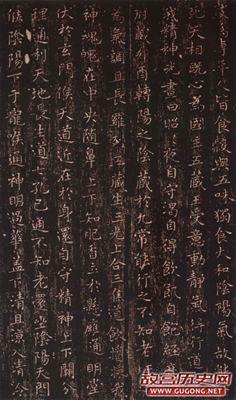 人皆食榖與五味獨食大和陰陽氣故
死天相既心為國主五藏王受意動静氣得行
我精神光晝日昭昭夜自守渴自得飲飢自飽
府藏卯酉轉陽之陰藏於九常能行之不知老
為氣調且長羅列五藏生三光上合三焦道飲醬漿我
神魂魄在中央随鼻上下知肥香立於懸膺通明堂
伏於玄門候天道近在於身還自守精神上下開分
理通利天地長生道七孔已通不知老還坐陰陽天門
候陰陽下于龍喉通神明過華蓋下清且涼入清泠
故宫历史网